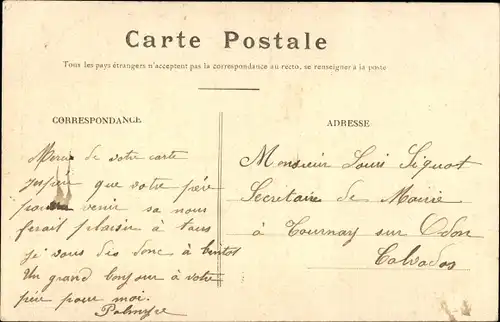 Carte Postale
Tous les pays étrangers n'acceptent pas la correspondance au recto, se renseigner à la poste
CORRESPONDANCE
Merci de votre carte
jespair que votre père
poura venir sa nous
ferait plaisir à tous
je vous dis donc à bientot
Un grand bonjour à votre
père pour moi.
Palmyre
ADRESSE
Monsieur Louis Siquot
Secretaire de Mairie
à Tournay sur Odon
Calvados